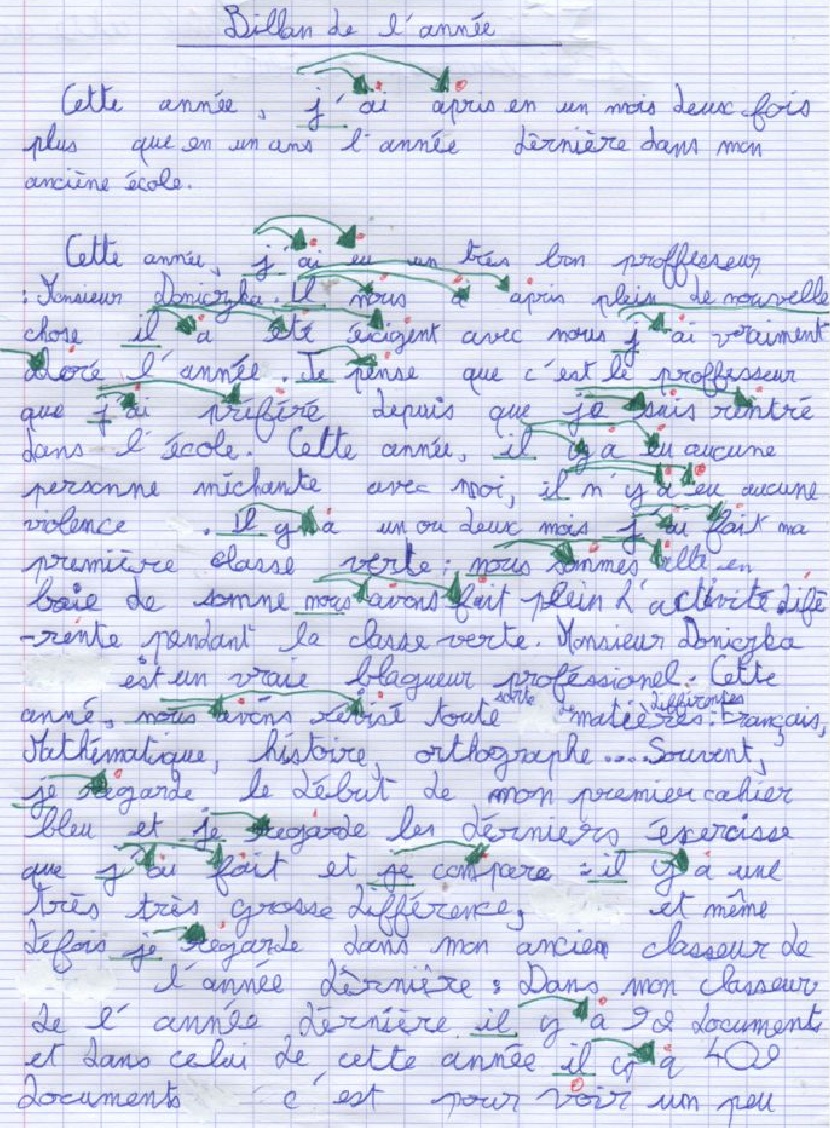 Billan de l'année
Cette année, j'ai apris en un mois deux fois
plus que en un ans l'année dèrnière dans mon
anciène école.
Cette année, j'ai eu un très bon proffesseur
: Monsieur Doniczka. Il nous a apris plein de nouvelle
chose il a été éxigent avec nous j'ai vraiment
adoré l'année. Je pense que c'est le proffesseur
que j'ai préféré depuis que je suis rentré
dans l'école. Cette année, il y a eu aucune
personne méchante avec moi, il n'y a eu aucune
violence . Il y a un ou deux mois j'ai fait ma
première classe verte : nous sommes allé en
baie de somne nous avons fait plein d'activité difé
-rente pendant la classe verte. Monsieur Doniczka
est un vraie blagueur proféssionel. Cette
anné, nous avons révisé toute sorte de différentes matières : Français,
Mathématique, histoire, orthographe .... Souvent,
je regarde le début de mon premier cahier
bleu et je regarde les dérniers éxercisse
que j'ai fait et je compare : il y a une
très très grosse différence, et même
défois je regarde dans mon ancien classeur de
l'année dèrnière : Dans mon classeur
de l'année dèrnière il y a 92 documents
et dans celui de cette année il y a 409
documents c'est pour voir un peu